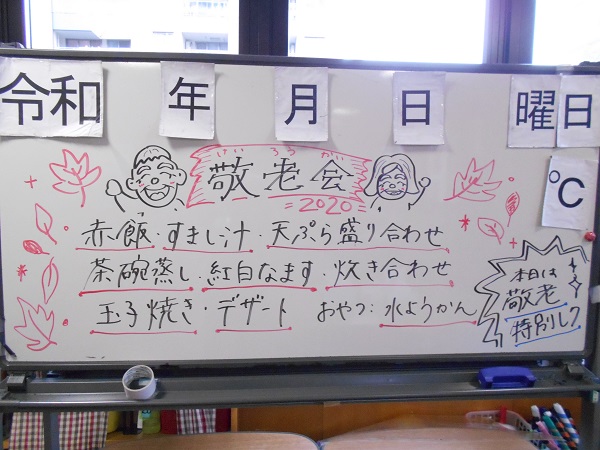 令和 年 月 日 曜日
℃
けいろうかい
敬老会
=2020=
赤飯・すまし汁・天ぷら盛り合わせ
茶碗蒸し・紅白なます・炊き合わせ
玉子焼き・デザート おやつ:水ようかん
本日は
敬老
特別レク